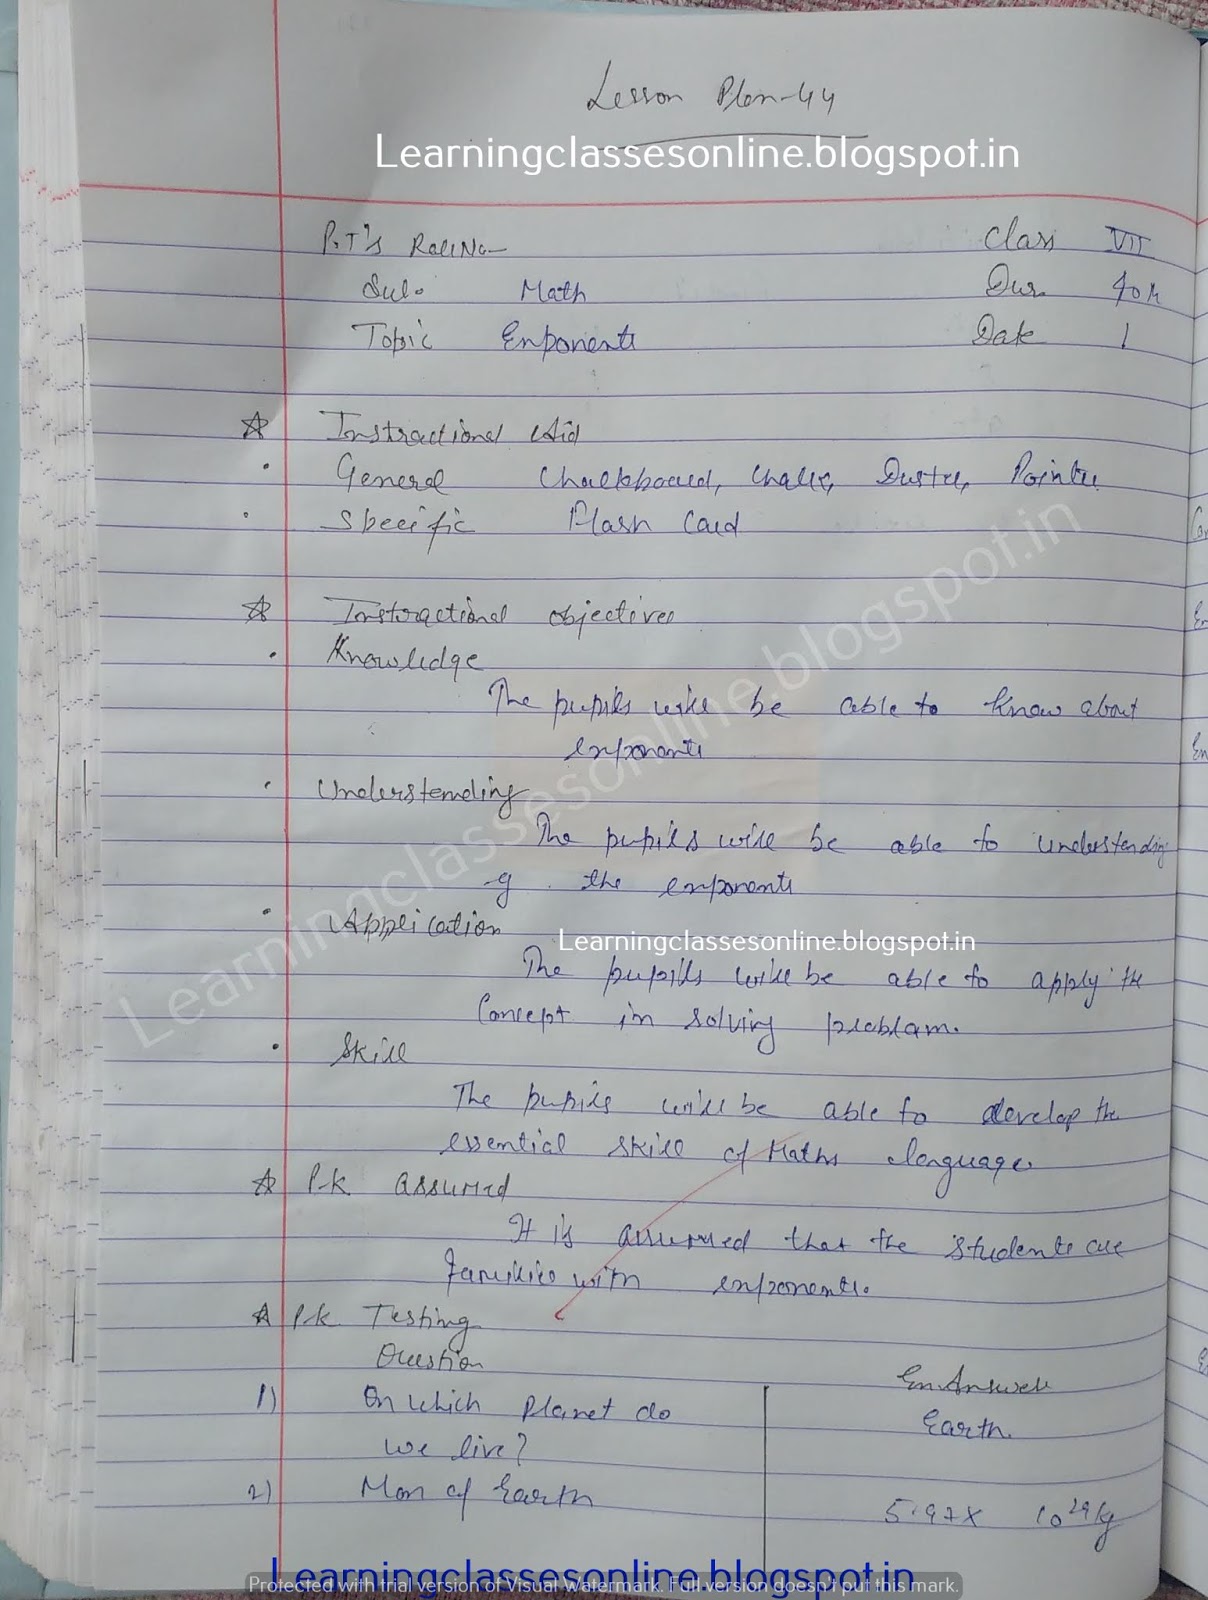 Lesson Plan-44
Learningclassesonline.blogspot.in
P.T's Roll No- Class VII
Sub. Math Dur. 40 M
Topic Exponents Date
Instractional Aid
General Chalkboard, Chalk, Duster, Pointer
Specific Flash Card
Instractional objectives
Knowledge
The pupils will be able to know about
exponents
Understanding
The pupils will be able to understanding
of the exponents
Application
Learningclassesonline.blogspot.in
The pupils will be able to apply the
Concept in solving problam.
Skill
The pupils will be able to develop the
essential skill of Maths language
P.k assumed
It is assumed that the students are
with exponents.
P.k Testing
Question En.Answer
1) On which Planet do Earth.
we live?
2) Mon of Earth 5.97x 10²⁴ kg
Learningclassesonline.blogspot.in
Learningclassesonline.blogspot.in
Protected with trial version of Visual Watermark. Full version doesn't put this mark.